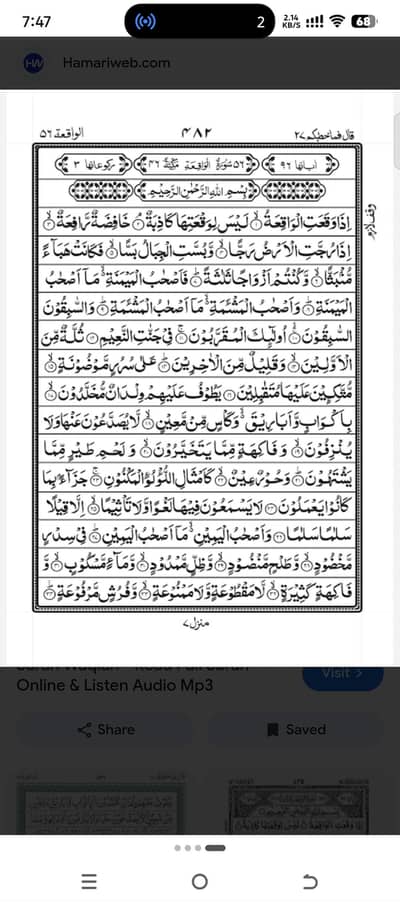 7:47
2
2.14 KB/S
68
HW Hamariweb.com
قال فما خطبكم ٢٧
۴۸۲
الواقعة ٥٦
اٰیاتها ٩٦
٥٦ سُوْرَةُ الْوَاقِعَةِ مَكِّيَّةٌ ٤٦
رکوعاتها ٣
بِسْمِ اللهِ الرَّحْمٰنِ الرَّحِيْمِ
اِذَا وَقَعَتِ الْوَاقِعَةُ ۙ۱ لَيْسَ لِوَقْعَتِهَا كَاذِبَةٌ ۘ۲ خَافِضَةٌ رَّافِعَةٌ ۙ۳
اِذَا رُجَّتِ الْاَرْضُ رَجًّا ۙ۴ وَّبُسَّتِ الْجِبَالُ بَسًّا ۙ۵ فَكَانَتْ هَبَآءً
مُّنْۢبَثًّا ۙ۶ وَّكُنْتُمْ اَزْوَاجًا ثَلٰثَةً ؕ۷ فَاَصْحٰبُ الْمَيْمَنَةِ ۙ مَاۤ اَصْحٰبُ
الْمَيْمَنَةِ ؕ۸ وَاَصْحٰبُ الْمَشْـَٔمَةِ ۙ مَاۤ اَصْحٰبُ الْمَشْـَٔمَةِ ؕ۹ وَالسّٰبِقُوْنَ
السّٰبِقُوْنَ ۚ۱۰ اُولٰٓئِكَ الْمُقَرَّبُوْنَ ۚ۱۱ فِيْ جَنّٰتِ النَّعِيْمِ ۱۲ ثُلَّةٌ مِّنَ
الْاَوَّلِيْنَ ۙ۱۳ وَقَلِيْلٌ مِّنَ الْاٰخِرِيْنَ ؕ۱۴ عَلٰى سُرُرٍ مَّوْضُوْنَةٍ ۙ۱۵
مُّتَّكِـِٕيْنَ عَلَيْهَا مُتَقٰبِلِيْنَ ۱۶ يَطُوْفُ عَلَيْهِمْ وِلْدَانٌ مُّخَلَّدُوْنَ ۙ۱۷
بِاَكْوَابٍ وَّاَبَارِيْقَ ۙ وَكَاْسٍ مِّنْ مَّعِيْنٍ ۙ۱۸ لَّا يُصَدَّعُوْنَ عَنْهَا وَلَا
يُنْزِفُوْنَ ۙ۱۹ وَفَاكِهَةٍ مِّمَّا يَتَخَيَّرُوْنَ ۙ۲۰ وَلَحْمِ طَيْرٍ مِّمَّا
يَشْتَهُوْنَ ؕ۲۱ وَحُوْرٌ عِيْنٌ ۙ۲۲ كَاَمْثَالِ اللُّؤْلُؤِ الْمَكْنُوْنِ ۚ۲۳ جَزَآءًۢ بِمَا
كَانُوْا يَعْمَلُوْنَ ۲۴ لَا يَسْمَعُوْنَ فِيْهَا لَغْوًا وَّلَا تَاْثِيْمًا ۙ۲۵ اِلَّا قِيْلًا
سَلٰمًا سَلٰمًا ۲۶ وَاَصْحٰبُ الْيَمِيْنِ ۙ مَاۤ اَصْحٰبُ الْيَمِيْنِ ؕ۲۷ فِيْ سِدْرٍ
مَّخْضُوْدٍ ۙ۲۸ وَّطَلْحٍ مَّنْضُوْدٍ ۙ۲۹ وَّظِلٍّ مَّمْدُوْدٍ ۙ۳۰ وَّمَآءٍ مَّسْكُوْبٍ ۙ۳۱ وَّ
فَاكِهَةٍ كَثِيْرَةٍ ۙ۳۲ لَّا مَقْطُوْعَةٍ وَّلَا مَمْنُوْعَةٍ ۙ۳۳ وَّفُرُشٍ مَّرْفُوْعَةٍ ؕ۳۴
منزل ٧
Online & Listen Audio Mp3
Visit >
Share
Saved